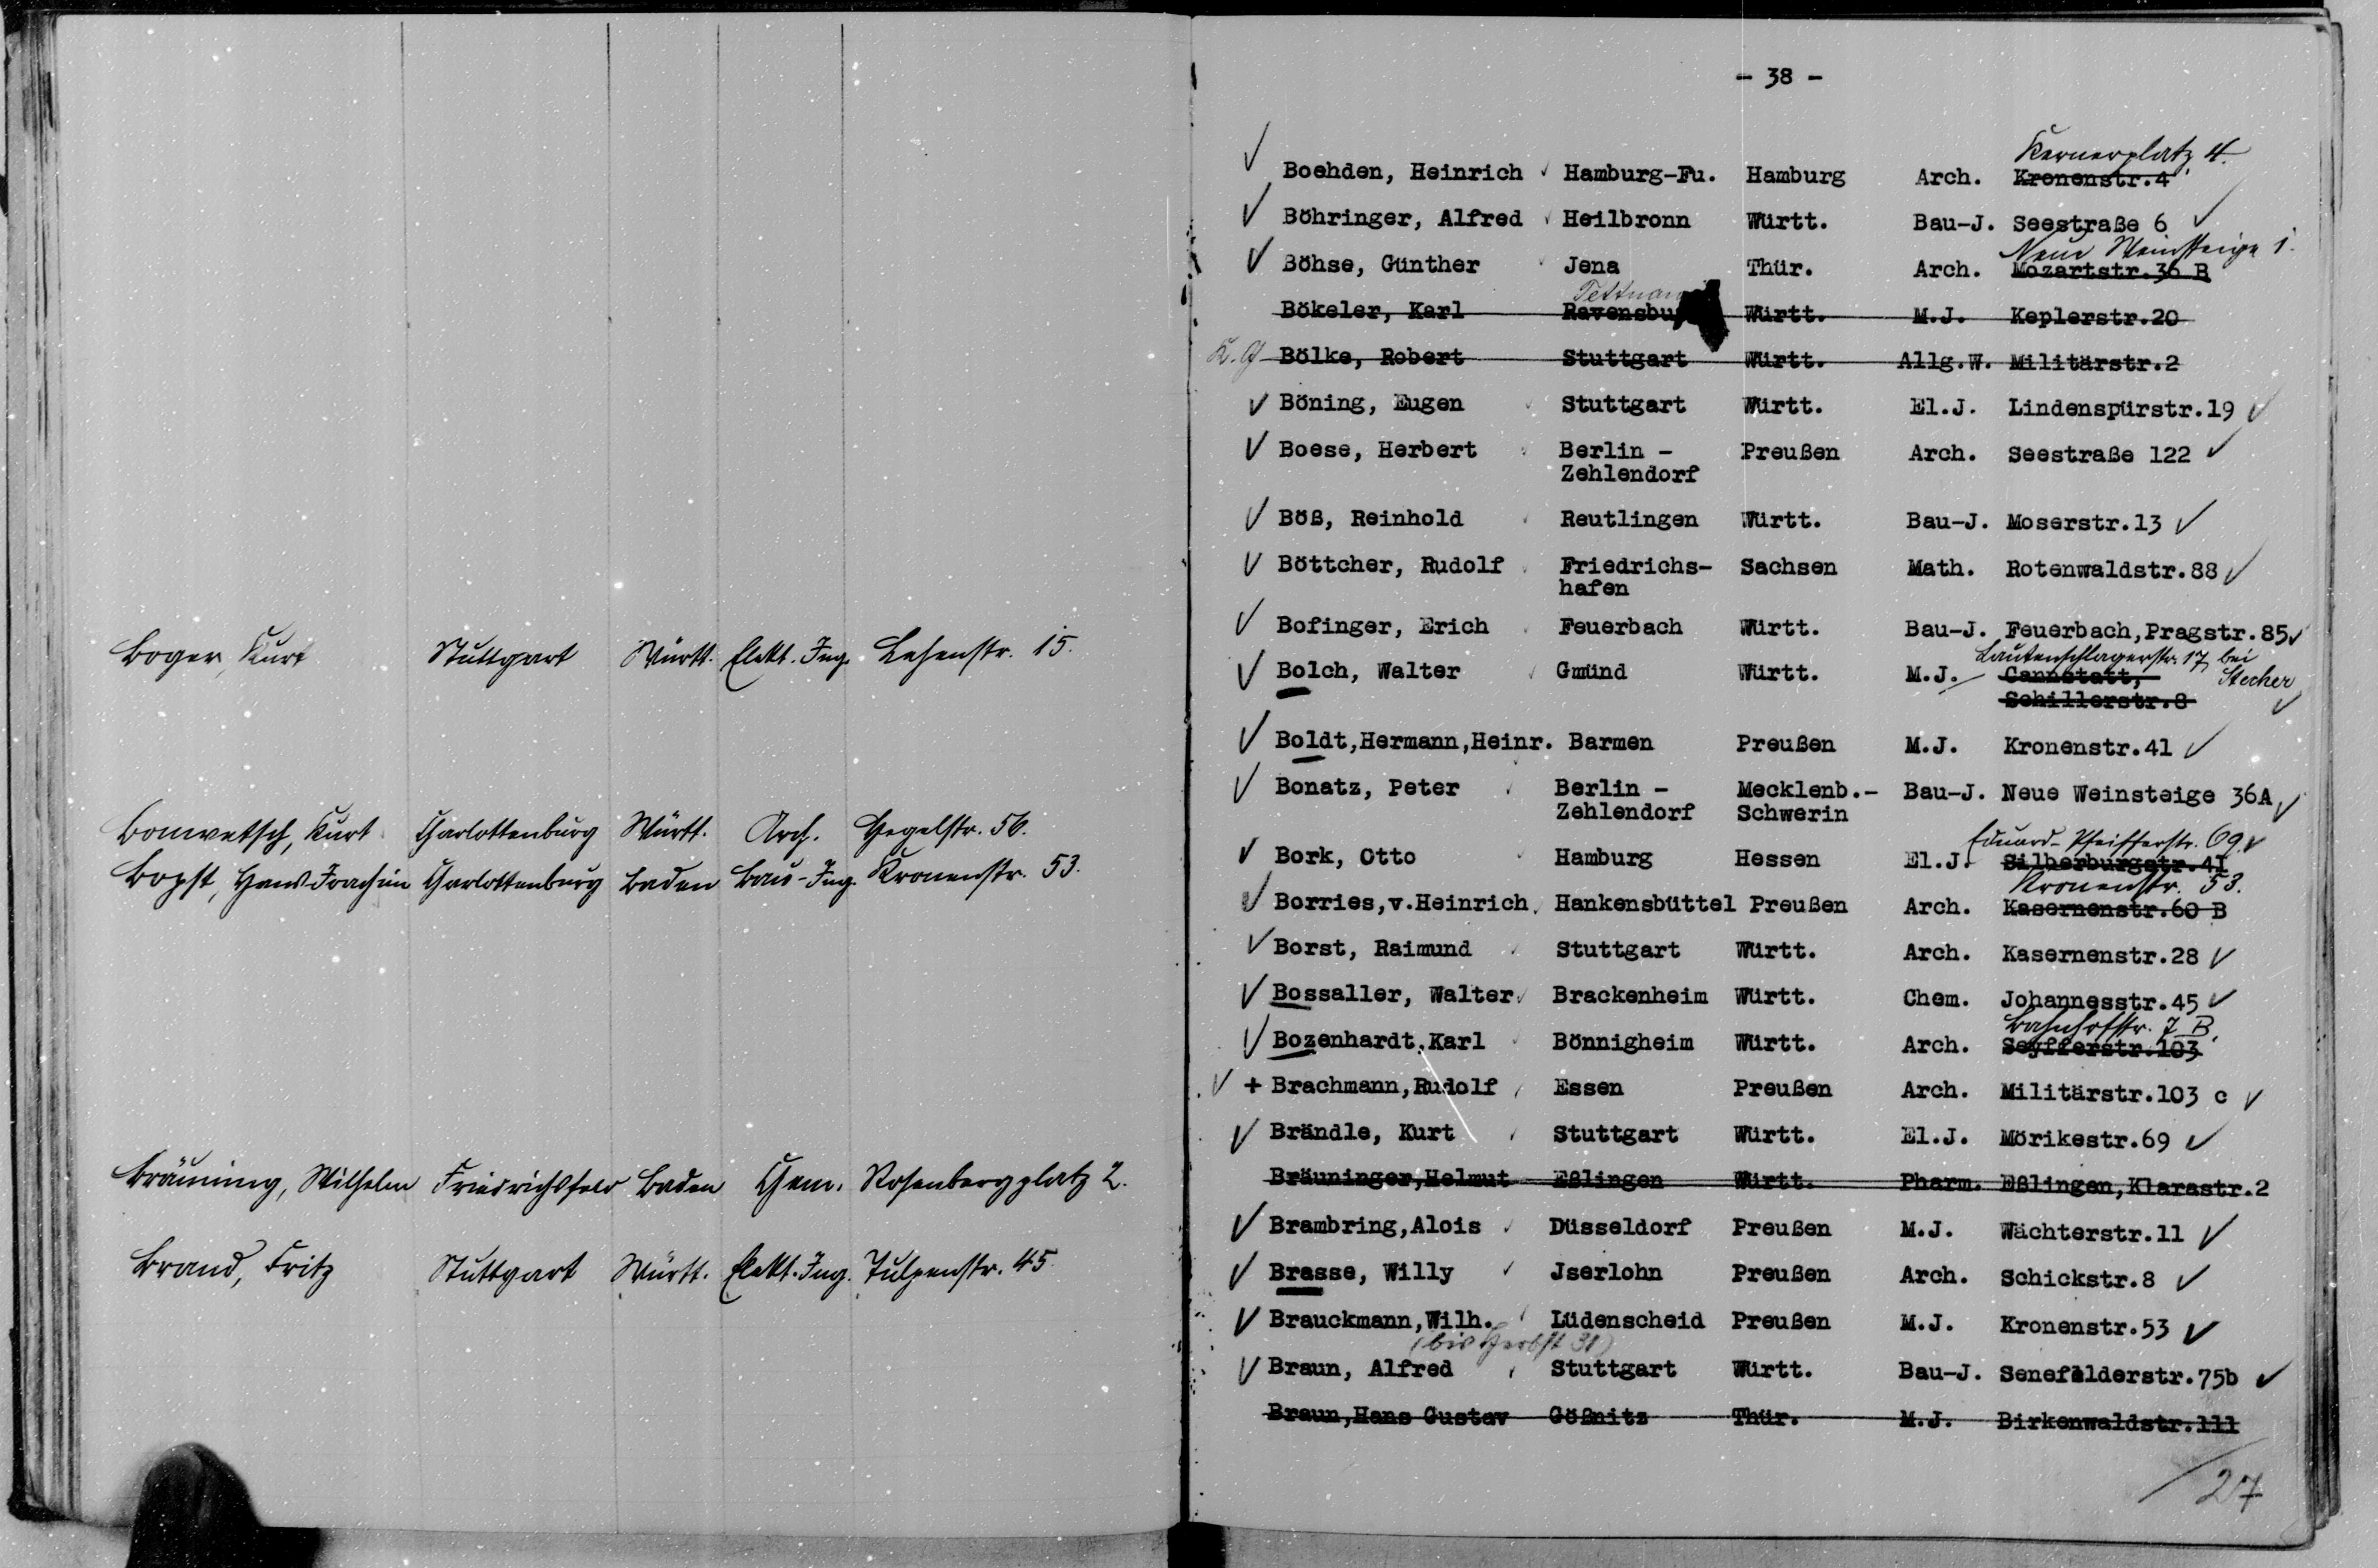 Boger, Kurt Stuttgart Württ. Elekt. Ing. Lehenstr. 15.
Bonwetsch, Kurt Charlottenburg Württ. Arch. Hegelstr. 56.
Bopst, Hans-Joachim Charlottenburg Baden Bau-Ing. Kronenstr. 53.
Bräuning, Wilhelm Friedrichsfeld Baden Chem. Rosenbergplatz 2.
Brand, Fritz Stuttgart Württ. Elekt. Ing. Tulpenstr. 45
- 38 -
Kernerplatz 4.
Boehden, Heinrich Hamburg-Fu. Hamburg Arch. Kronenstr.4
Böhringer, Alfred Heilbronn Württ. Bau-J. Seestraße 6
Neue Weinsteige 1.
Böhse, Günther Jena Thür. Arch. Mozartstr.36 B
Tettnan
Bökeler, Karl Ravensbu Württ. M.J. Keplerstr.20
K.G Bölke, Robert Stuttgart Württ. Allg.W. Militärstr.2
Böning, Eugen Stuttgart Württ. El.J. Lindenspürstr.19
Boese, Herbert Berlin - Preußen Arch. Seestraße 122
Zehlendorf
Böß, Reinhold Reutlingen Württ. Bau-J. Moserstr.13
Böttcher, Rudolf Friedrichs- Sachsen Math. Rotenwaldstr.88
hafen
Bofinger, Erich Feuerbach Württ. Bau-J. Feuerbach,Pragstr.85
Lautenschlagerstr. 17 bei
Bolch, Walter Gmünd Württ. M.J. Cannstatt, Stecher
Schillerstr.8
Boldt,Hermann,Heinr. Barmen Preußen M.J. Kronenstr.41
Bonatz, Peter Berlin - Mecklenb.- Bau-J. Neue Weinsteige 36A
Zehlendorf Schwerin
Eduard-Pfeifferstr. 69
Bork, Otto Hamburg Hessen El.J. Silberburgstr.41
Kronenstr. 53.
Borries,v.Heinrich Hankensbüttel Preußen Arch. Kasernenstr.60 B
Borst, Raimund Stuttgart Württ. Arch. Kasernenstr.28
Bossaller, Walter Brackenheim Württ. Chem. Johannesstr.45
Bahnhofstr. 7 B.
Bozenhardt,Karl Bönnigheim Württ. Arch. Seyfferstr.103
+ Brachmann,Rudolf Essen Preußen Arch. Militärstr.103 c
Brändle, Kurt Stuttgart Württ. El.J. Mörikestr.69
Bräuninger,Helmut Eßlingen Württ. Pharm. Eßlingen,Klarastr.2
Brambring,Alois Düsseldorf Preußen M.J. Wächterstr.11
Brasse, Willy Jserlohn Preußen Arch. Schickstr.8
Brauckmann,Wilh. Lüdenscheid Preußen M.J. Kronenstr.53
(bis Herbst 31)
Braun, Alfred Stuttgart Württ. Bau-J. Senefelderstr.75b
Braun,Hans Gustav Gößnitz Thür. M.J. Birkenwaldstr.111
27